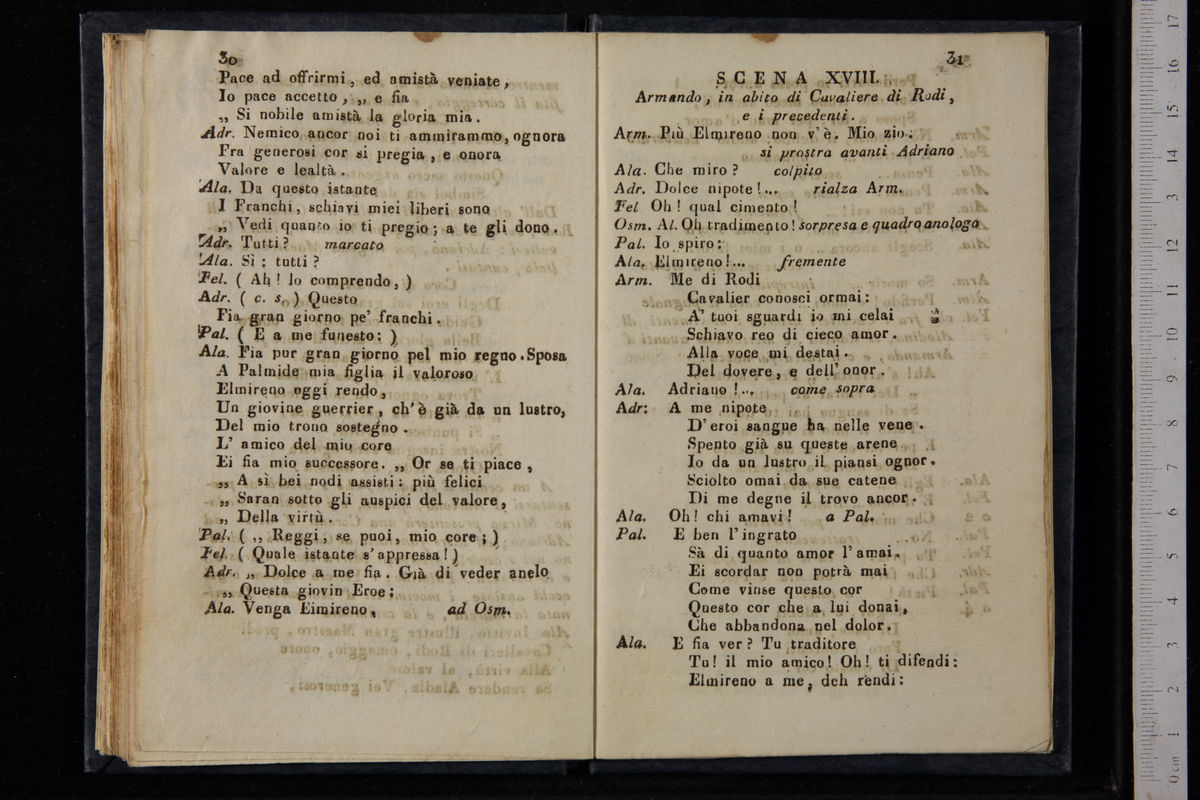 30
Pace ad offrirmi, ed amistà veniate,
Io pace accetto, ,, e fia
,, Si nobile amistà la gloria mia.
Adr. Nemico ancor noi ti ammirammo, ognora
Fra generosi cor si pregia, e onora
Valore e lealtà.
Ala. Da questo istante
I Franchi, schiavi miei liberi sono
,, Vedi quanto io ti pregio; a te gli dono.
Adr. Tutti? marcato
Ala. Sì: tutti?
Fel. ( Ah! lo comprendo, )
Adr. ( c. s. ) Questo
Fia gran giorno pe' franchi.
Pal. ( E a me funesto: )
Ala. Fia pur gran giorno pel mio regno. Sposa
A Palmide mia figlia il valoroso
Elmireno oggi rendo,
Un giovine guerrier, ch'è già da un lustro,
Del mio trono sostegno.
L' amico del mio core
Ei fia mio successore. ,, Or se ti piace,
,, A sì bei nodi assisti: più felici
,, Saran sotto gli auspici del valore,
,, Della virtù.
Pal. ( ,, Reggi, se puoi, mio core; )
Fel. ( Quale istante s'appressa! )
Adr. ,, Dolce a me fia. Già di veder anelo
,, Questa giovin Eroe;
Ala. Venga Elmireno, ad Osm.
31
SCENA XVIII.
Armando, in abito di Cavaliere di Rodi,
e i precedenti.
Arm. Più Elmireno non v'è. Mio zio.
si prostra avanti Adriano
Ala. Che miro? colpito
Adr. Dolce nipote!... rialza Arm.
Fel Oh! qual cimento!
Osm. Al. Oh tradimento! sorpresa e quadro anologo
Pal. Io spiro:
Ala. Elmireno!... fremente
Arm. Me di Rodi
Cavalier conosci ormai:
A' tuoi sguardi io mi celai
Schiavo reo di cieco amor.
Alla voce mi destai.
Del dovere, e dell'onor.
Ala. Adriano!... come sopra
Adr: A me nipote
D'eroi sangue ha nelle vene.
Spento già su queste arene
Io da un lustro il piansi ognor.
Sciolto omai da sue catene
Di me degne il trovo ancor.
Ala. Oh! chi amavi! a Pal.
Pal. E ben l'ingrato
Sà di quanto amor l'amai.
Ei scordar non potrà mai
Come vinse questo cor
Questo cor che a lui donai,
Che abbandona nel dolor.
Ala. E fia ver? Tu traditore
Tu! il mio amico! Oh! ti difendi:
Elmireno a me, deh rendi: